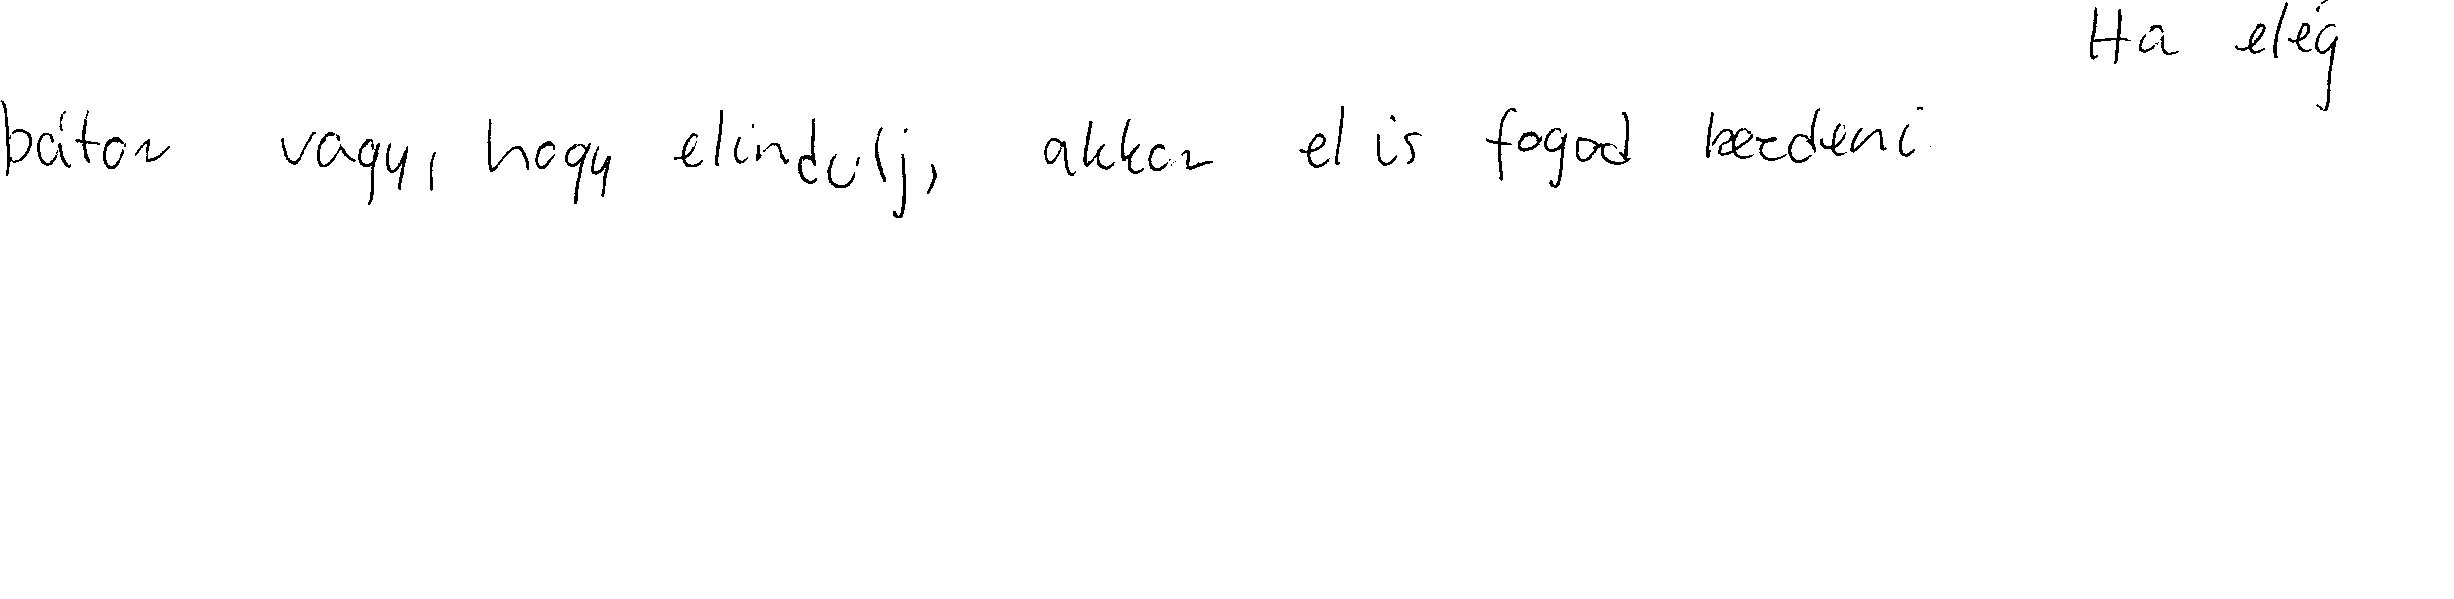 Ha elég
bátor vagy, hogy elindulj, akkor el is fogod kezdeni